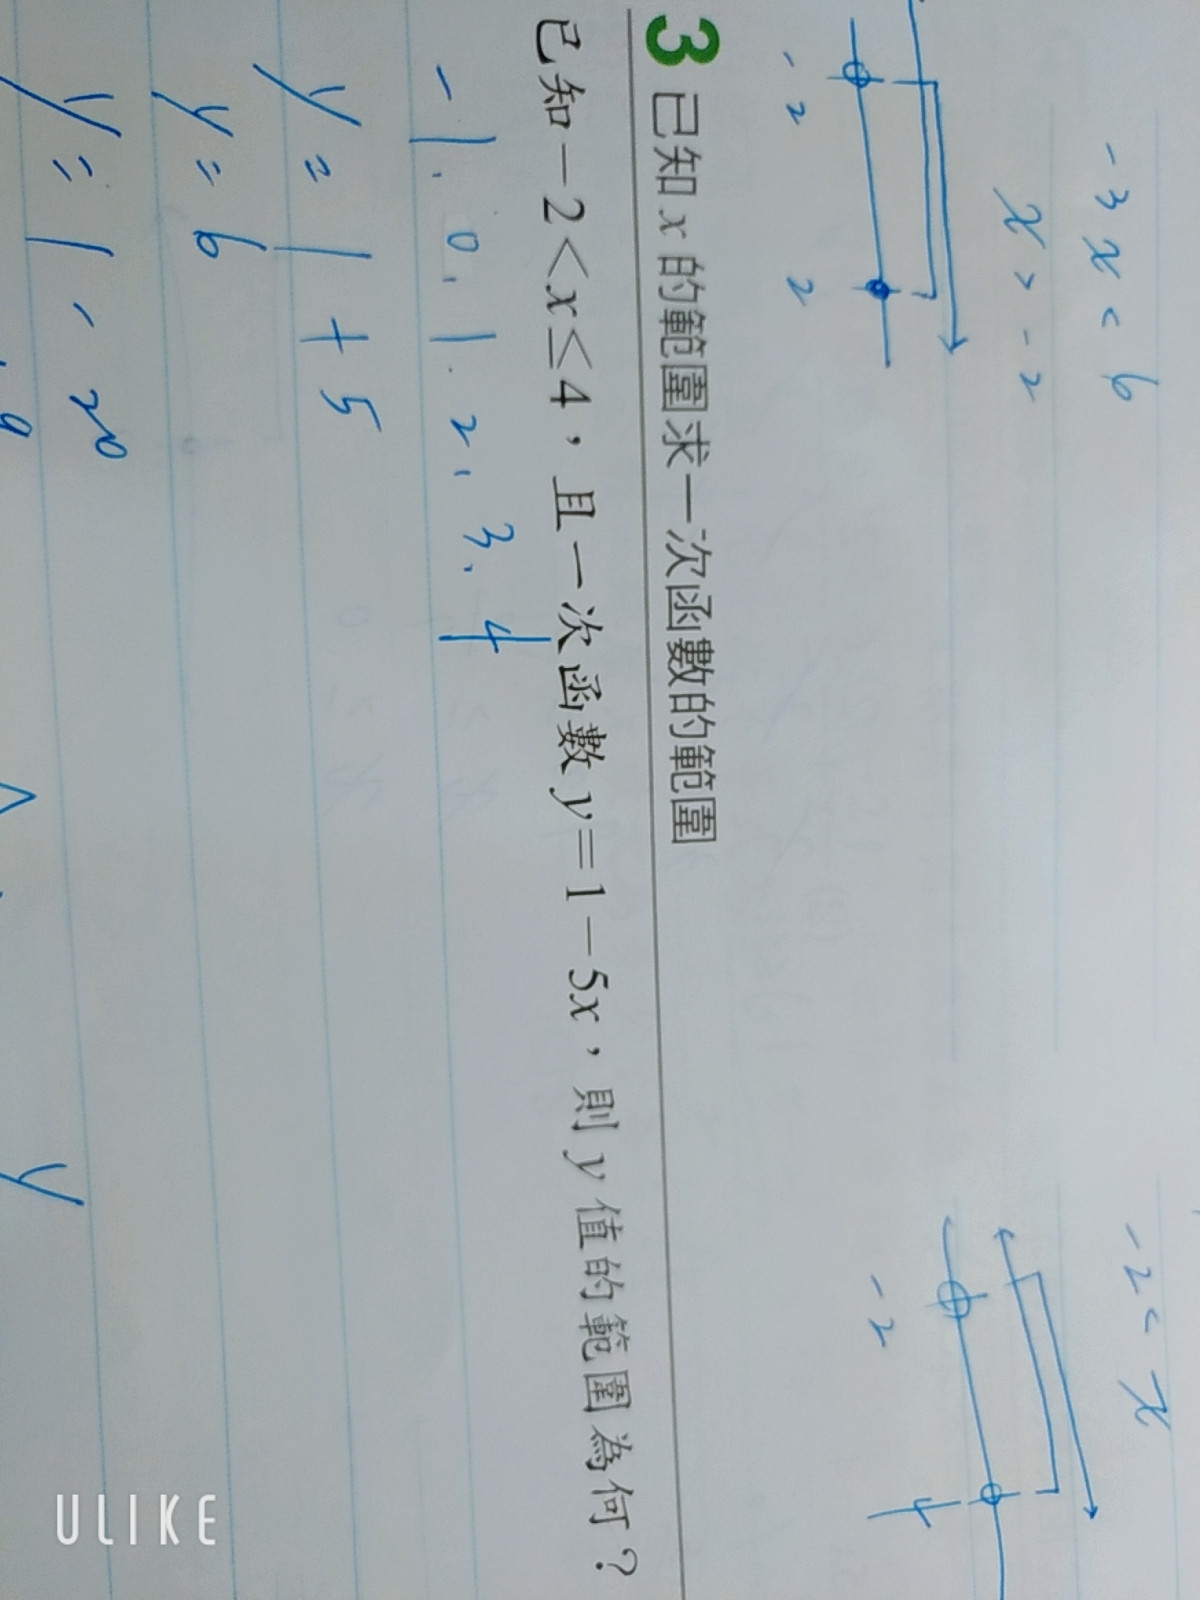 -3x < 6
-2 < x
x > -2
-2
2
-2
4
3 已知 x 的範圍求一次函數的範圍
已知 -2<x≤4,且一次函數 y=1-5x,則 y 值的範圍為何?
-1. 0. 1. 2. 3. 4
y = 1 + 5
y = 6
y = 1 - 20
y
ULIKE